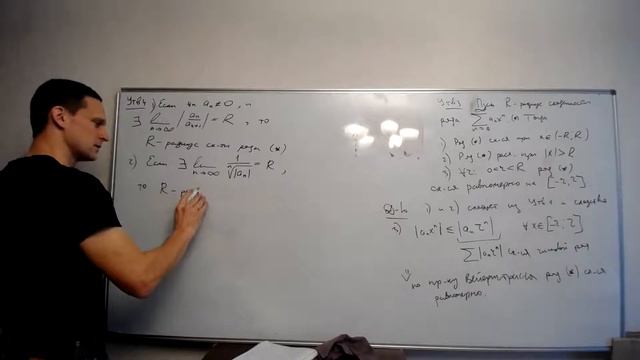 Утв 4 1) Если ∀n aₙ ≠ 0, и
∃ lim n→∞ |aₙ/aₙ₊₁| = R, то
R - радиус сх-ти ряда (*)
2) Если ∃ lim n→∞ 1/ⁿ√|aₙ| = R,
то R - ра
Утв 3 Пусть R - радиус сходимости
ряда ∑ n=0 ∞ aₙxⁿ (*) Тогда
1) Ряд (*) сх-ся при x∈(-R, R)
2) Ряд (*) расх. при |x|>R
3) ∀r: 0<r<R ряд (*)
сх-ся равномерно на [-r, r]
Д-во 1) и 2) следует из Утв 1 и следствия
3) |aₙxⁿ| ≤ |aₙrⁿ| ∀x∈[-r, r]
∑|aₙrⁿ| сх-ся числовой ряд
⇓
по пр-ку Вейерштрасса ряд (*) сх-ся
равномерно.